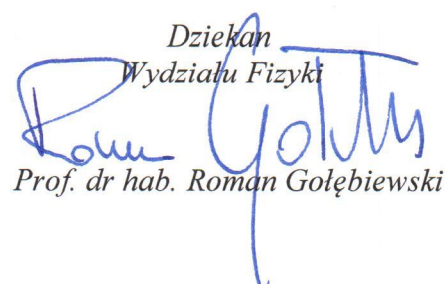 Dziekan
Wydziału Fizyki
Prof. dr hab. Roman Gołębiewski